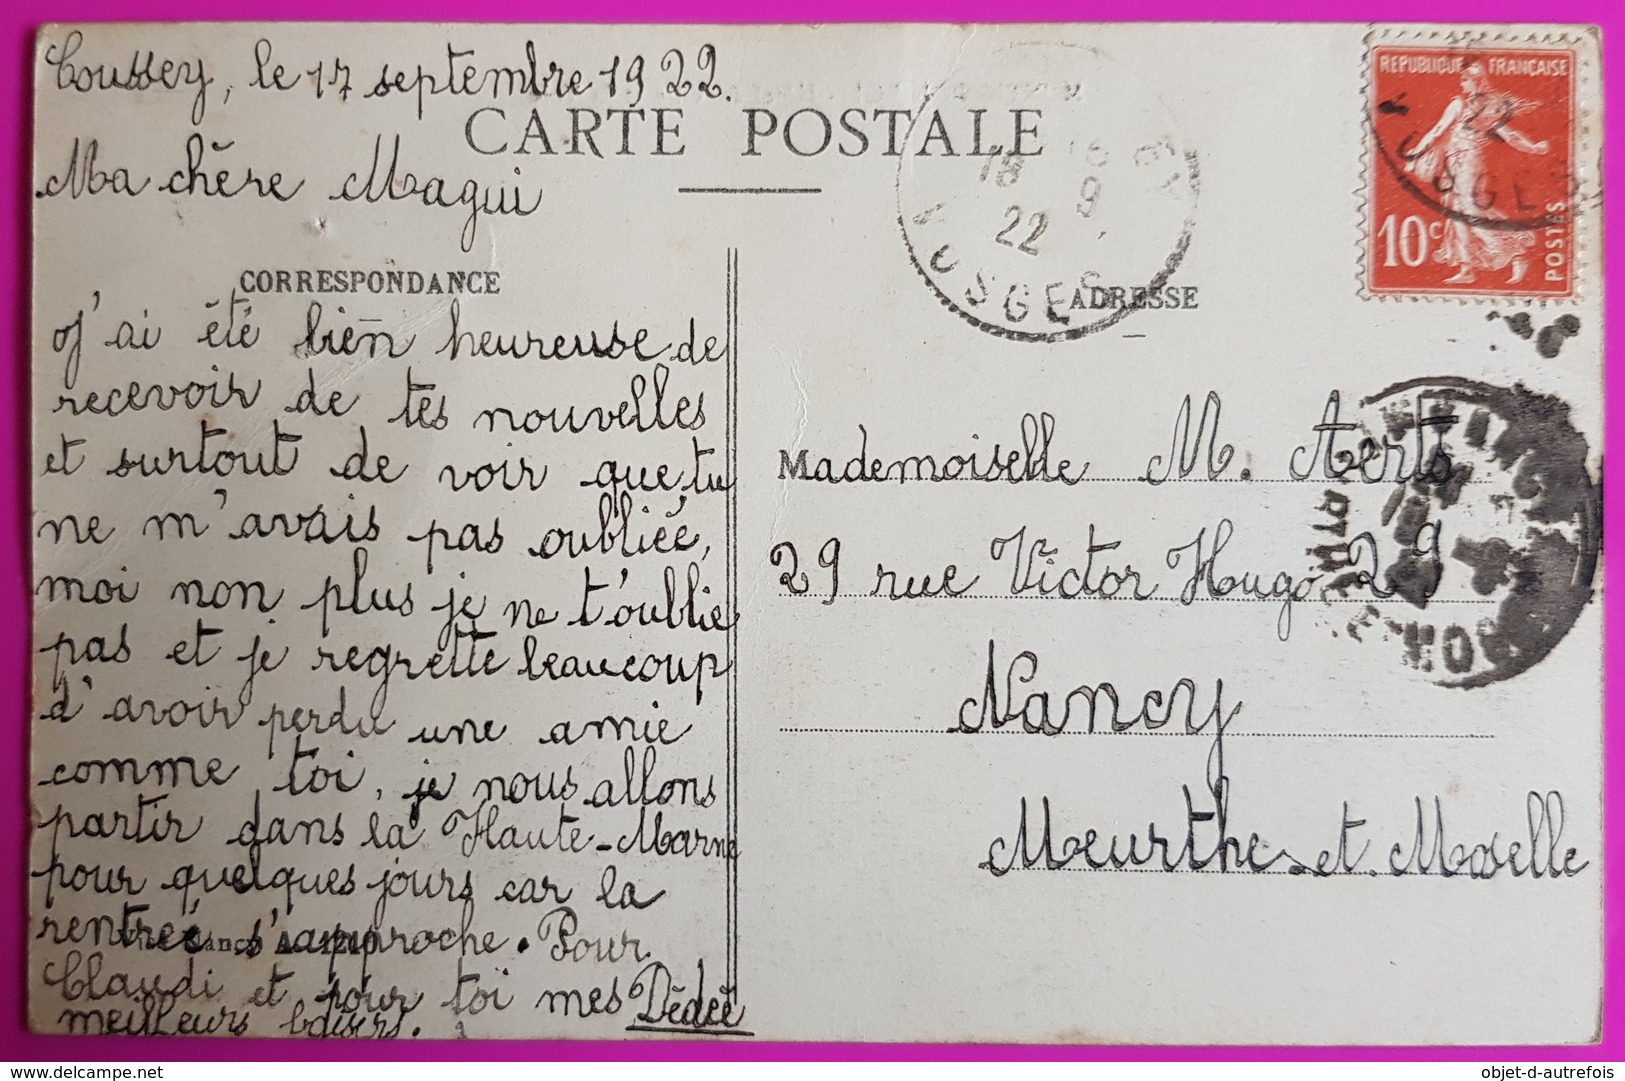 Coussey, le 17 septembre 1922.
CARTE POSTALE
Ma chère Magui
CORRESPONDANCE
J'ai été bien heureuse de
recevoir de tes nouvelles
et surtout de voir que tu
ne m'avais pas oubliée,
moi non plus je ne t'oublie
pas et je regrette beaucoup
d'avoir perdu une amie
comme toi, je nous allons
partir dans la Haute-Marne
pour quelques jours car la
rentrée s'approche. Pour
Claudi et pour toi mes Dédée
meilleurs baisers.
REPUBLIQUE FRANÇAISE
10c
POSTES
22
VOSGES
18 9
22
VOSGES
ADRESSE
Mademoiselle M. Aerts
29 rue Victor Hugo 29
Nancy
Meurthe-et-Moselle
objet-d-autrefois